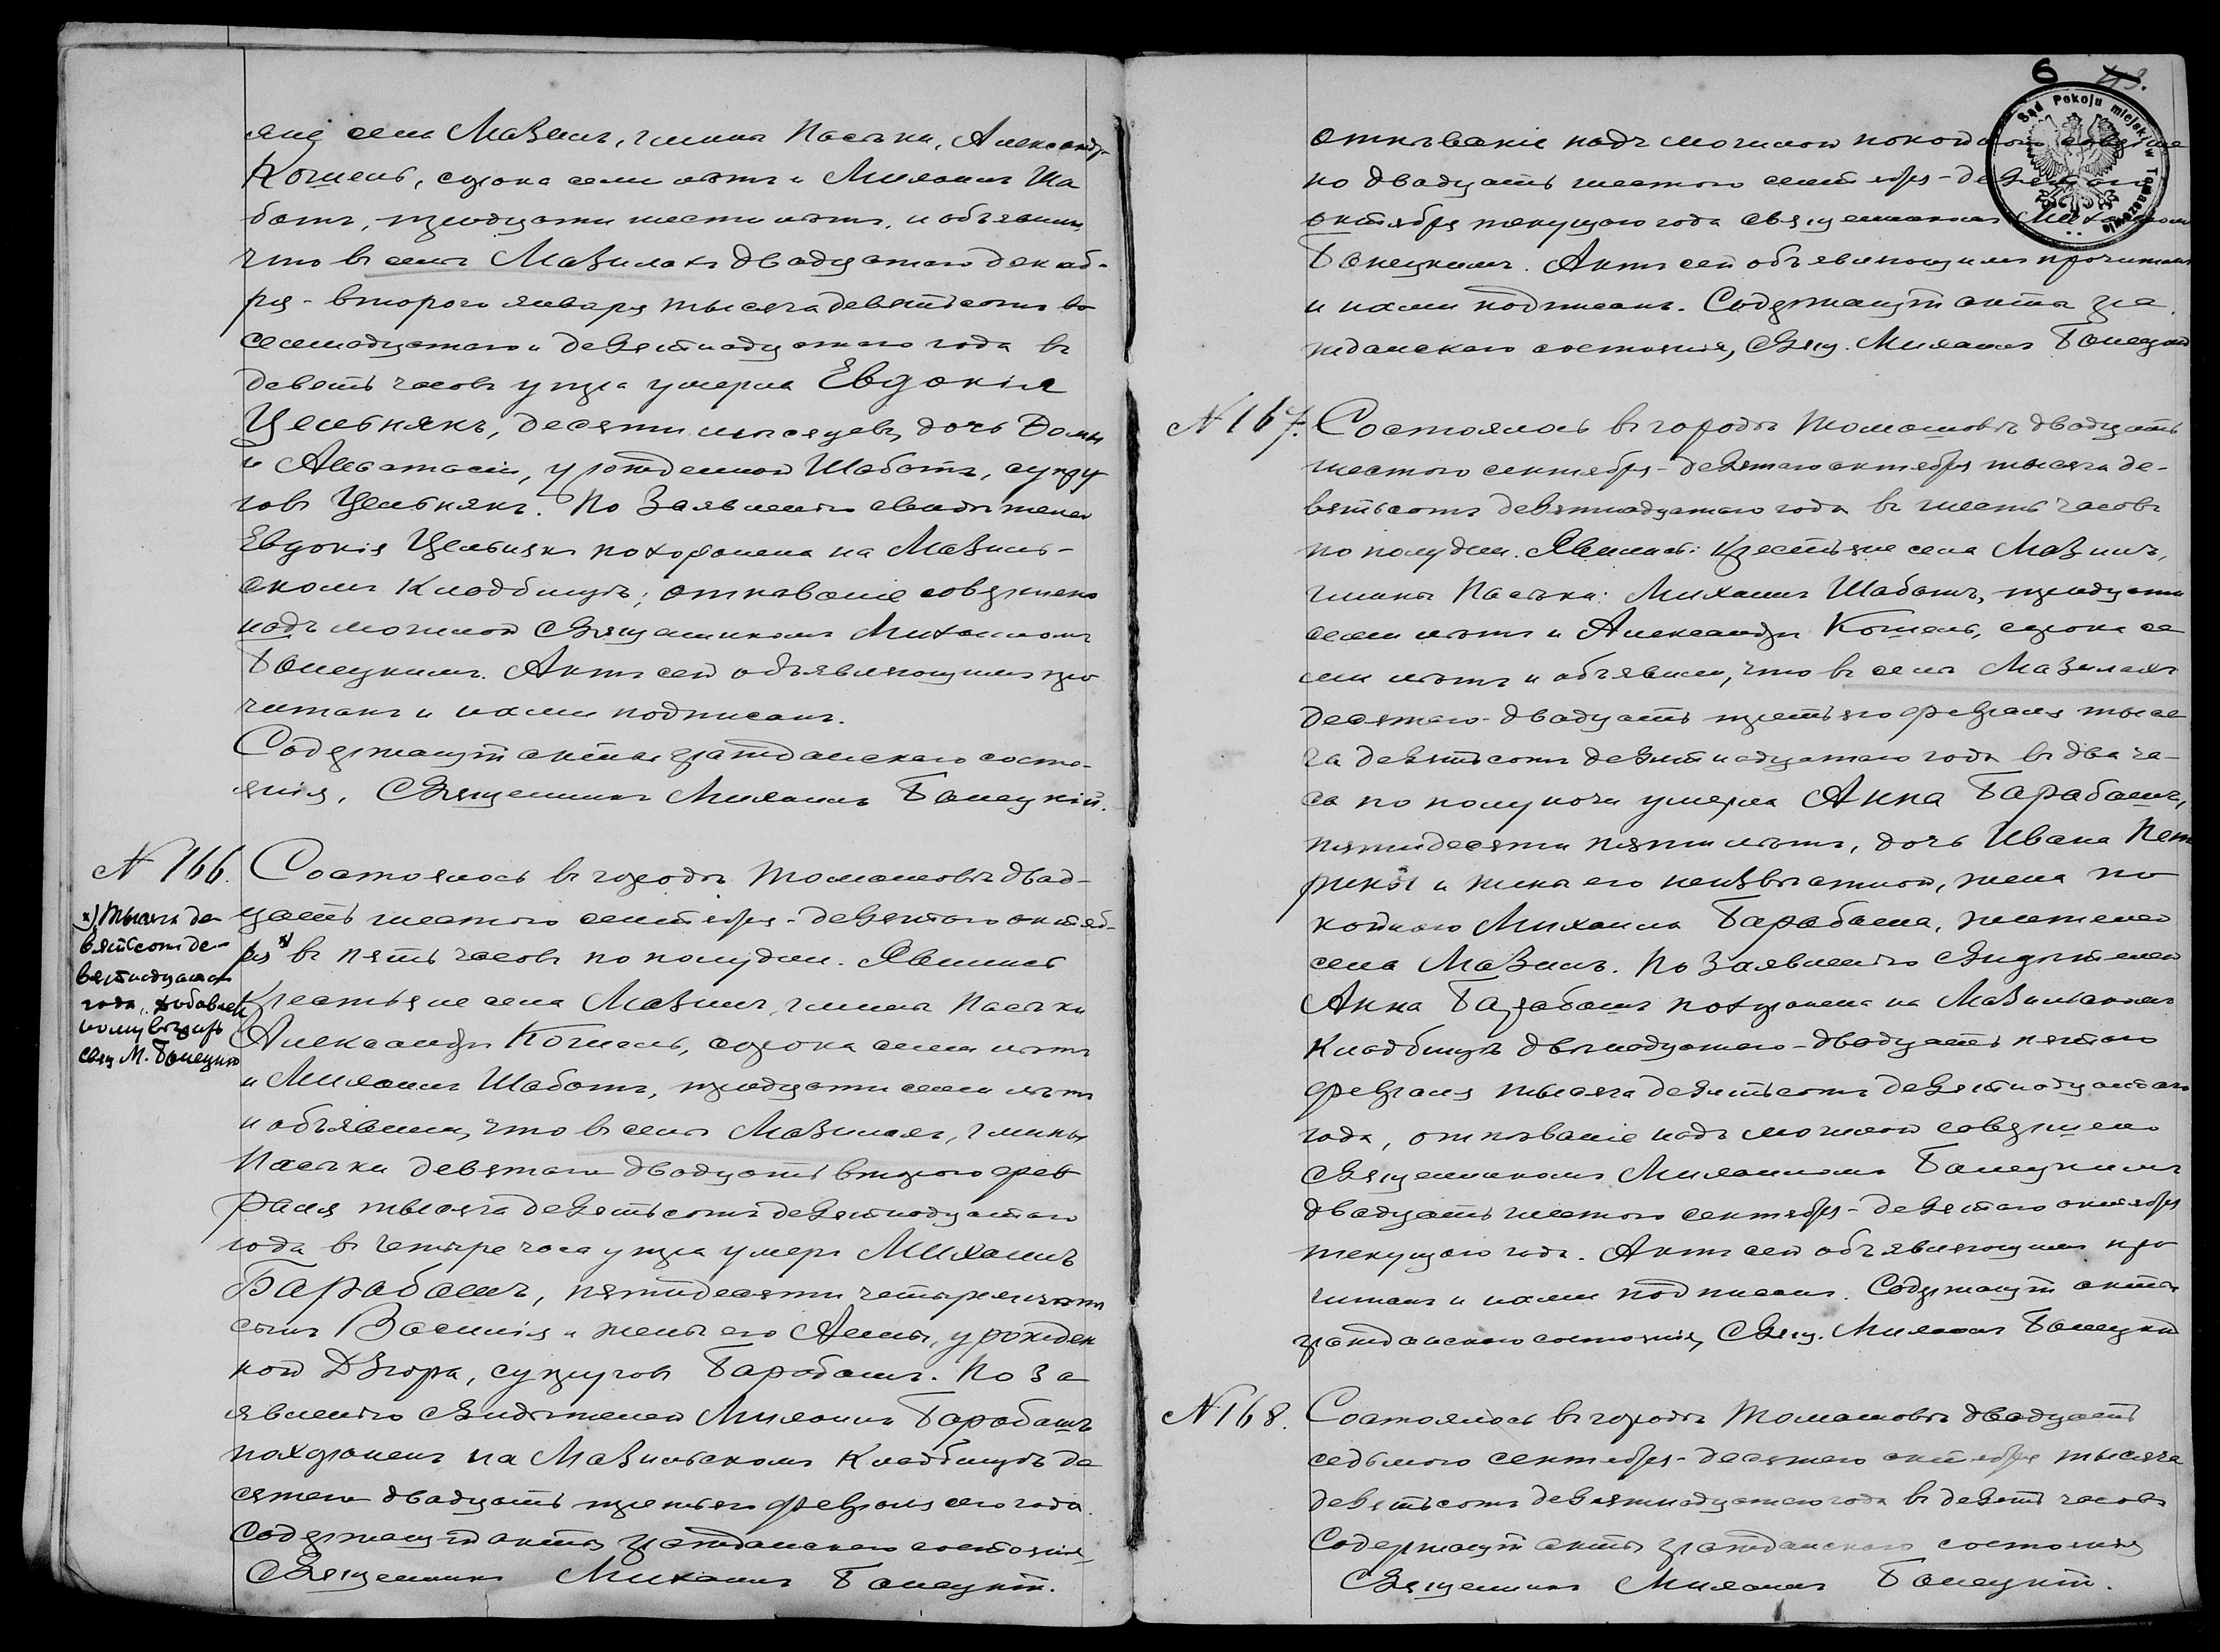 яне села Мазилъ, гмины Пасѣки, Александръ
Кошель, сорока семи лѣтъ и Михаилъ Ша
ботъ, тридцати шести лѣтъ, и объявили
что въ селѣ Мазилахъ двадцатаго декаб-
ря - второго января тысяча девятьсотъ во
семнадцатаго и девятнадцатаго года въ
девять часовъ утра умерла Евдокія
Цельнякъ, десяти мѣсяцевъ, дочь
и Анастасіи, урожденной Шаботъ, супру
говъ Цельнякъ. По заявленію свидѣтелей
Евдокія Цельнякъ похоронена на Мазиль-
скомъ кладбищѣ; отпѣваніе совершено
надъ могилой Священникомъ Михаиломъ
Бонецкимъ. Актъ сей объявляющимъ про
читанъ и нами подписанъ.
Содержащій акты гражданскаго состо-
янія, Священникъ Михаилъ Бонецкій.
№ 166. Состоялось въ городѣ Томашовѣ двад-
цать шестого сентября - девятаго октяб-
ря *) въ пять часовъ по полудни. Явились
Крестьяне села Мазилъ, гмины Пасѣки
Александръ Кошель, сорока семи лѣтъ
и Михаилъ Шаботъ, тридцати семи лѣтъ
и объявили, что въ селѣ Мазилахъ, гмины
Пасѣки девятаго двадцать второго фев
раля тысяча девятьсотъ девятнадцатаго
года въ четыре часа утра умеръ Михаилъ
Барабашъ, пятидесяти четырехъ лѣтъ
сынъ Василія и жены его Анны, урожден
ной Дзюра, супруговъ Барабашъ. По за
явленію свидѣтелей Михаилъ Барабашъ
похороненъ на Мазильскомъ Кладбищѣ де
сятаго двадцать третьяго февраля сего года.
Содержащій акты гражданскаго состоянія,
Священникъ Михаилъ Бонецкій.
*) Тысяча де-
вятьсотъ де-
вятнадцатаго
года,
свящ М. Бонецкій
6
Sąd Pokoju miejski w Tomaszowie
отпѣваніе надъ могилой покойной соверше
но двадцать шестого сентября - девятаго
октября текущаго года священникомъ Михаиломъ
Бонецкимъ. Актъ сей объявляющимъ прочитанъ
и нами подписанъ. Содержащій акты гра
жданскаго состоянія, Свящ. Михаилъ Бонецкій
№ 167. Состоялось въ городѣ Томашовѣ двадцать
шестого сентября - девятаго октября тысяча де-
вятьсотъ девятнадцатаго года въ шесть часовъ
по полудни. Явились: Крестьяне села Мазилъ,
гмины Пасѣки: Михаилъ Шаботъ, тридцати
семи лѣтъ и Александръ Кошель, сорока се
ми лѣтъ и объявили, что въ селѣ Мазилахъ
десятаго - двадцать третьяго февраля тыся
ча девятьсотъ девятнадцатаго года въ два ча-
са по полуночи умерла Анна Барабашъ,
пятидесяти пяти лѣтъ, дочь Ивана Пет
рикъ и жены его неизвѣстной, жена по
койнаго Михаила Барабаша, жителей
села Мазилъ. По заявленію Свидѣтелей
Анна Барабашъ похоронена на Мазильскомъ
Кладбищѣ двѣнадцатаго - двадцать пятаго
февраля тысяча девятьсотъ девятнадцатаго
года, отпѣваніе надъ могилой совершено
Священникомъ Михаиломъ Бонецкимъ
двадцать шестого сентября - девятаго октября
текущаго года. Актъ сей объявляющимъ про
читанъ и нами подписанъ. Содержащій акты
гражданскаго состоянія, Свящ. Михаилъ Бонецкій
№ 168. Состоялось въ городѣ Томашовѣ двадцать
седьмого сентября - десятаго октября тысяча
девятьсотъ девятнадцатаго года въ девять часовъ
Содержащій акты гражданскаго состоянія
Священникъ Михаилъ Бонецкій.